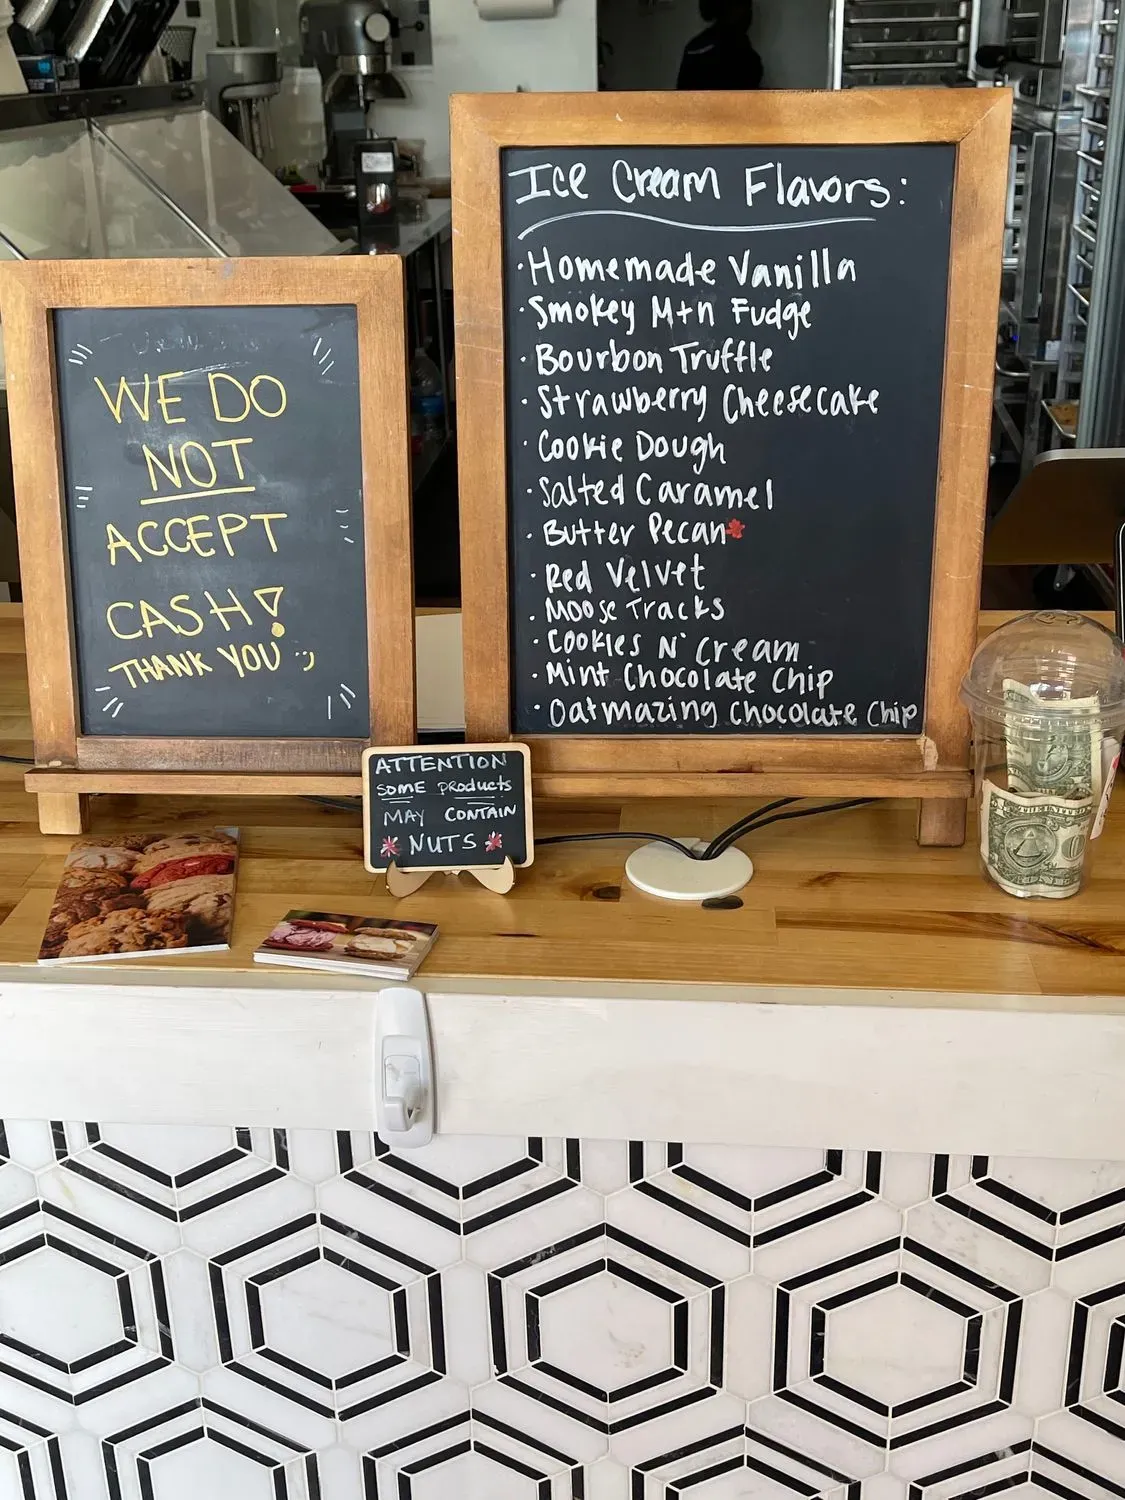 WE DO
NOT
ACCEPT
CASH!
THANK YOU :)
Ice Cream Flavors:
· Homemade Vanilla
· Smokey Mtn Fudge
· Bourbon Truffle
· Strawberry Cheesecake
· Cookie Dough
· Salted Caramel
· Butter Pecan*
· Red Velvet
· Moose Tracks
· Cookies N' Cream
· Mint Chocolate Chip
· Oatmazing Chocolate Chip
ATTENTION
SOME Products
MAY CONTAIN
* NUTS *